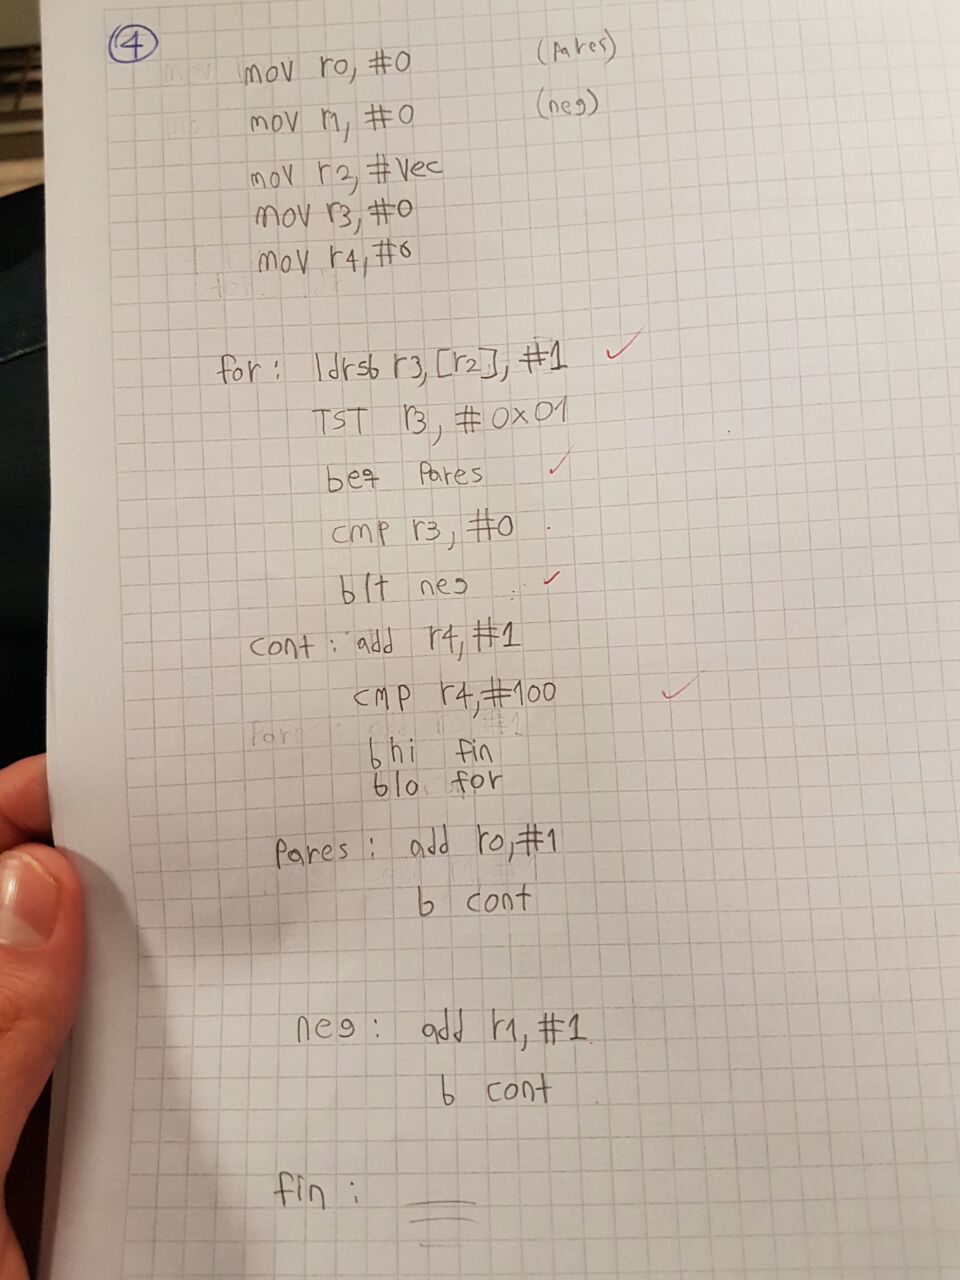 4
mov r0, #0 (pares)
mov r1, #0 (neg)
mov r2, #Vec
mov r3, #0
mov r4, #0
for: ldrsb r3, [r2], #1
TST r3, #0x01
beq Pares
cmp r3, #0
blt neg
cont: add r4, #1
cmp r4, #100
bhi fin
blo for
Pares: add r0, #1
b cont
neg: add r1, #1
b cont
fin: